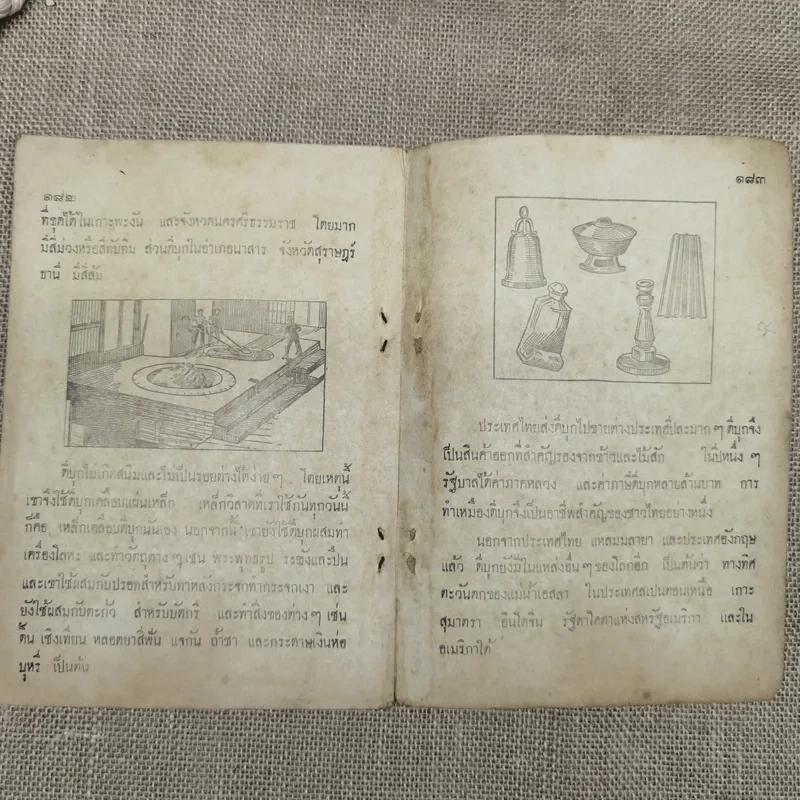 ๑๘๒
ที่ขุดได้ในเกาะพะงัน และจังหวัดนครศรีธรรมราช โดยมาก
มีสีม่วงหรือสีทับทิม ส่วนดีบุกในอำเภอนาสาร จังหวัดสุราษฎร์
ธานี มีสีส้ม
ดีบุกไม่เกิดสนิมและไม่เป็นรอยด่างได้ง่าย ๆ โดยเหตุนี้
เขาจึงใช้ดีบุกเคลือบแผ่นเหล็ก เหล็กวิลาดที่เราใช้กันทุกวันนี้
ก็คือ เหล็กเคลือบดีบุกนั่นเอง นอกจากนี้ เขายังใช้ดีบุกผสมทำ
เครื่องโลหะ และทำวัตถุต่าง ๆ เช่น พระพุทธรูป ระฆังและปืน
และเขาใช้ผสมกับปรอทสำหรับทาหลังกระจกทำกระจกเงา และ
ยังใช้ผสมกับตะกั่ว สำหรับบัดกรี และทำสิ่งของต่าง ๆ เช่น
คั่น เชิงเทียน หลอดยาสีฟัน แจกัน ถ้ำชา และกระดาษเงินห่อ
บุหรี่ เป็นต้น
๑๘๓
ประเทศไทยส่งดีบุกไปขายต่างประเทศปีละมาก ๆ ดีบุกจึง
เป็นสินค้าออกที่สำคัญรองจากข้าวและไม้สัก ในปีหนึ่ง ๆ
รัฐบาลได้ค่าภาคหลวง และค่าภาษีดีบุกหลายล้านบาท การ
ทำเหมืองดีบุกจึงเป็นอาชีพสำคัญของชาวไทยอย่างหนึ่ง
นอกจากประเทศไทย แหลมมลายา และประเทศอังกฤษ
แล้ว ดีบุกยังมีในแหล่งอื่น ๆ ของโลกอีก เป็นต้นว่า ทางทิศ
ตะวันตกของแม่น้ำเอสลา ในประเทศสเปนตอนเหนือ เกาะ
สุมาตรา อินโดจีน รัฐดาโคตาแห่งสหรัฐอเมริกา และใน
อเมริกาใต้